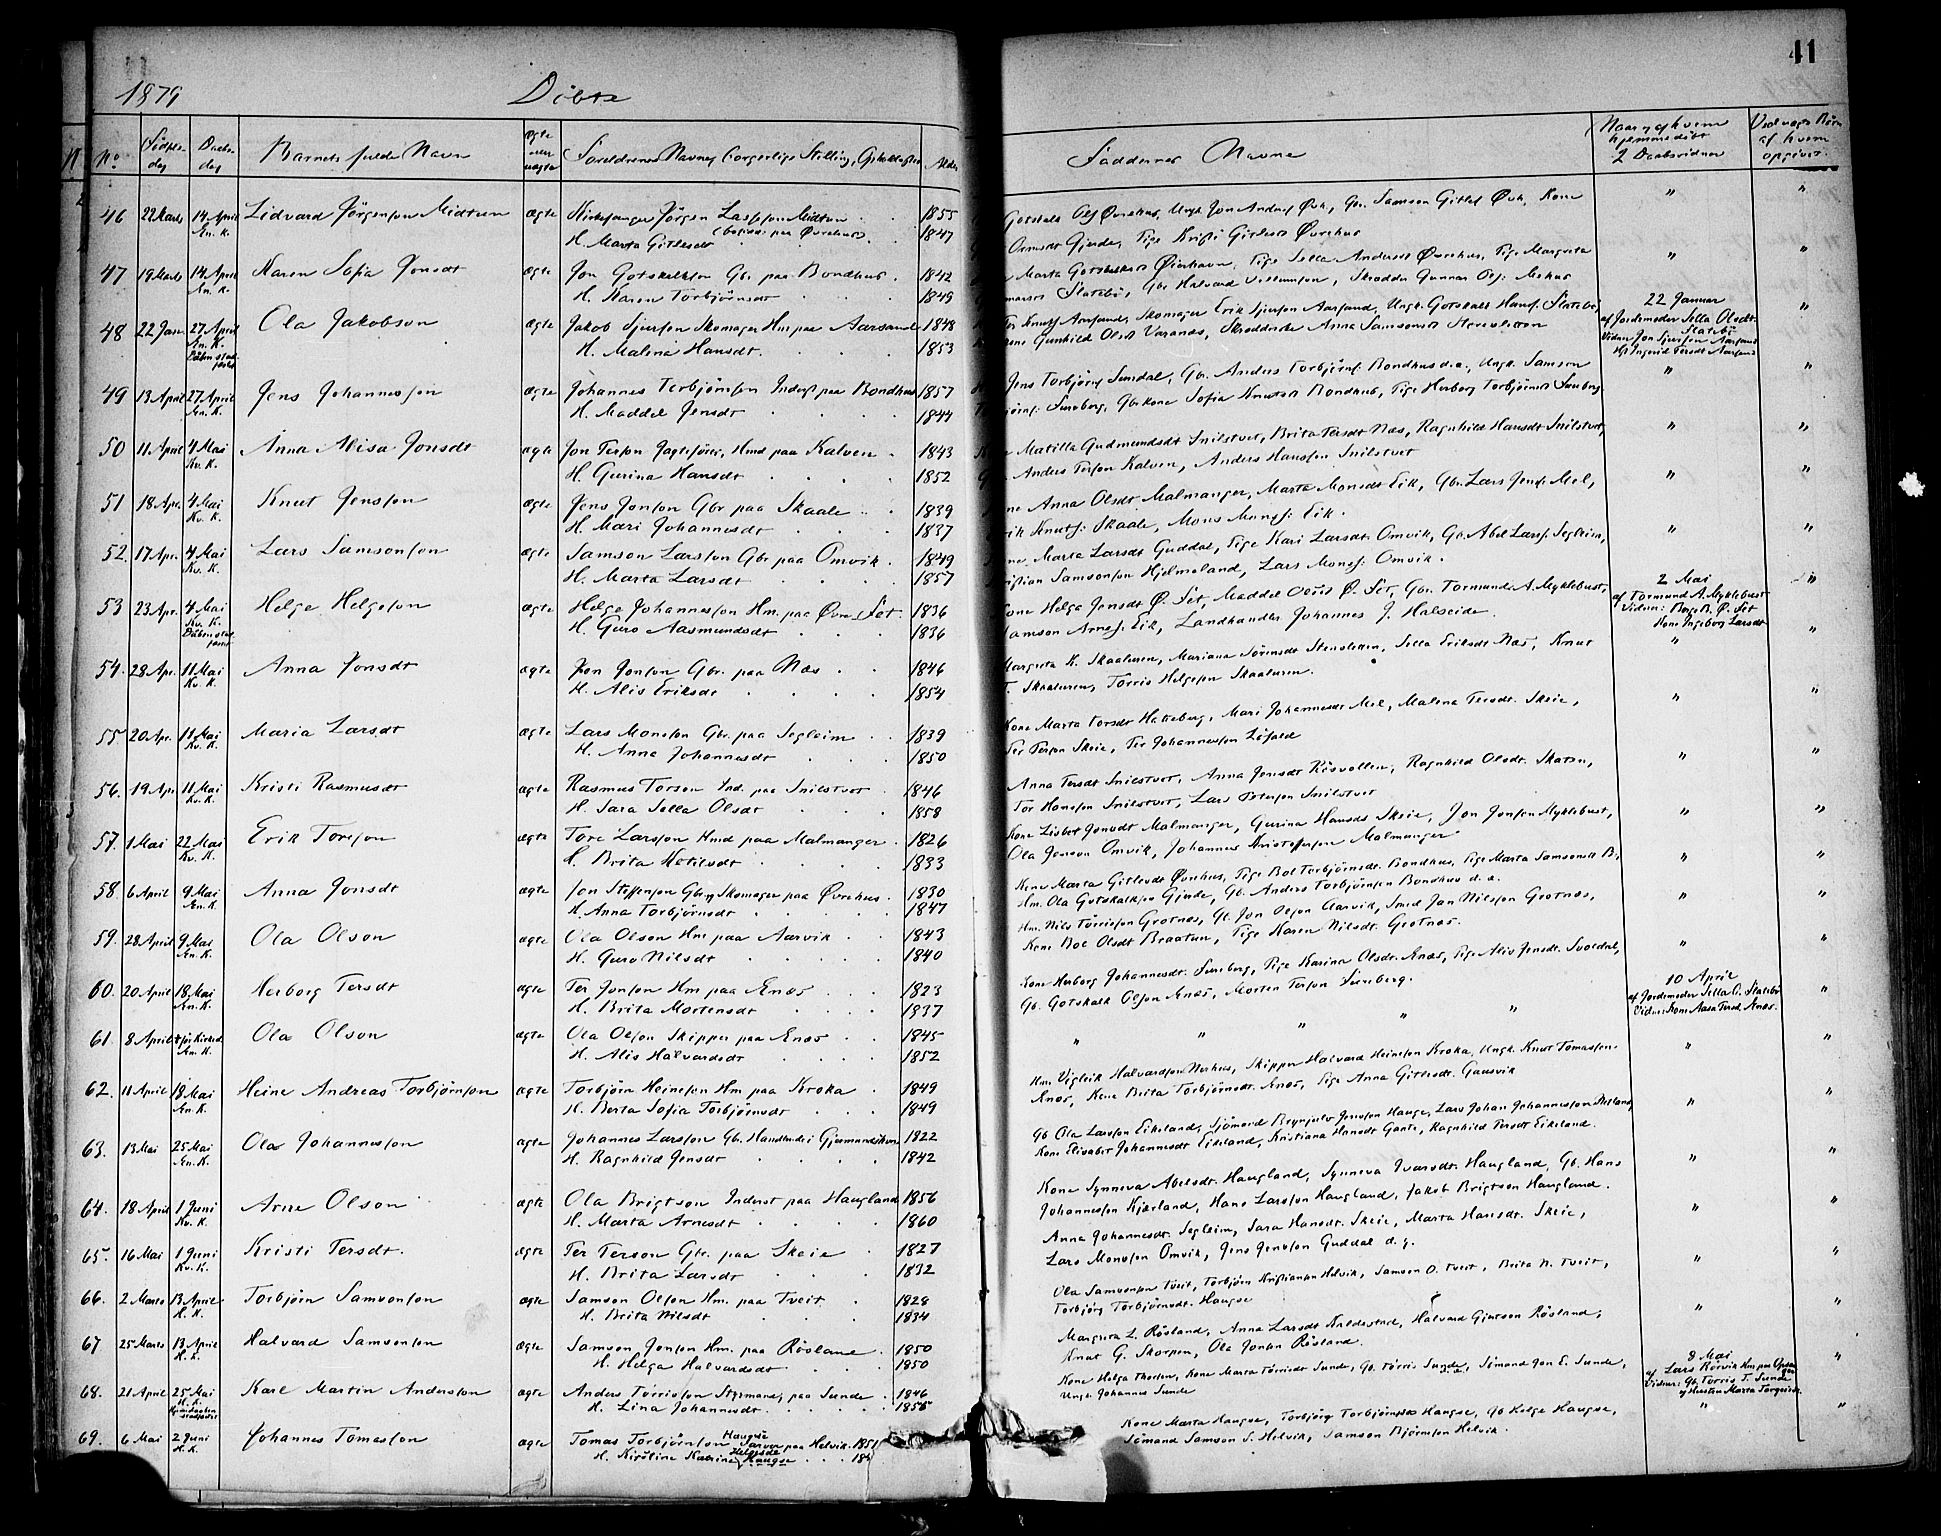 41
1879 Döbte
No. Fødsels-dag Daabs-dag Barnets fulde Navn ægte eller uægte Foreldrenes Navne, borgerlige Stilling, Opholdssted Alder Faddernes Navne Naar og af hvem hjemmedøbt 2 Daabsvidner
46 22 Marts 14 April Lidvard Jörgenson Midtun ægte Kirkesanger Jörgen Lasseson Midtun 1855
En. K. H. Marta Gitlesdt (bosidd. paa Øvrehus) 1847
Gotskalk Olsf Øvrehus, Ungk. Jon Andersf Øvh, Gbr. Samson Gitlesf Øvh, Kone
Ormsdt Gjerde, Pige Kristi Gitlesdt Øvrehus
47 19 Marts 14 April Karen Sofia Jonsdt ægte Jon Gotskalkson Gbr. paa Bondhus 1842
En. K. H. Karen Torbjörnsdt 1849
Marta Gotskalksdt Öierhavn, Pige Sella Andersdt Øvrehus, Pige Margreta
Slatebö, Gbr Halvard Villumson, Skrædder Gunnar Olsf. Mehus
48 22 Jan. 27 April Ola Jakobson ægte Jakob Sjurson Skomager Hm paa Aarsand 1848
En. K. H. Malena Hansdt. 1853
Daaben stadfæstet
Tor Knutsf Aarsand, Skomager Erik Sjurson Aarsand, Ungk. Gotskalk Hansf. Slatebö,
Gunhild Olsdt Varanes, Skrædderske Anna Samsonsdt Stensletten
22 Januar
af Jordemoder Sella Olsdt. Slatebö
Vidner Jon Sjurson Aarsand
Ingerid Tersdt Aarsand
49 13 April 27 April Jens Johanneson ægte Johannes Torbjörnson Inderst paa Bondhus 1857
En. K. H. Maddel Jensdt 1844
Jens Torbjörnsf Sundal, Gb. Anders Torbjörnsf. Bondhus d.e., Ungk. Samson
Sunberg, Gbrkone Sofia Knutsdt Bondhus, Pige Herborg Torbjörnsdt Sunberg
50 11 April 4 Mai Anna Alisa Jonsdt ægte Jon Terson Jagtefører, Hmd paa Kalven 1843
Kv. K. H. Gurina Hansdt 1852
Matilla Gudmundsdt Snilstvet, Brita Tersdt Næs, Ragnhild Hansdt Snilstvet,
Anders Terson Kalven, Anders Hansson Snilstvet
51 18 Apr. 4 Mai Knut Jensson ægte Jens Jonson Gbr paa Skaale 1839
Kv. K. H. Mari Johannesdt 1837
Anna Olsdt Malmanger, Marta Monsdt Eik, Gbr. Lars Jensf. Mel,
Knutsf: Skaale, Mons Monsf: Eik.
52. 17 Apr. 4 Mai Lars Samsonson ægte Samson Larsson Gbr paa Omvik. 1849
Kv. K. H. Marta Larsdt 1857
Marta Larsdt Guddal, Pige Kari Larsdt. Omvik, Gb. Abel Larsf. Segleim,
Samsonson Hjelmeland, Lars Monsf: Omvik.
53 23 Apr. 4 Mai Helge Helgeson ægte Helge Johannesson Hm. paa Øvre Set. 1836
Kv. K. H. Guro Aasmundsdt 1836
Daaben stadfæstet
Kone Helga Jensdt Ø. Set, Maddel Olsdt Ø. Set, Gbr. Tormund A. Myklebust,
Samson Arnesf: Eik, Landhandler Johannes J. Halseide.
2 Mai
af Tormund A. Myklebust
Vidner: Ø. Set
Kone Ingeborg Larsdt
54. 28 Apr. 11 Mai Anna Jonsdt ægte Jon Jonson Gbr. paa Næs 1846
Kv. K. H. Alis Eriksdt 1854
Margreta K. Skaaluren, Mariana Sörensdt Stensletten, Sella Eriksdt Næs, Knut
T. Skaaluren, Torris Helgeson Skaaluren.
55 20 Apr. 11 Mai Maria Larsdt ægte Lars Monsson Gbr. paa Segleim 1839
Kv. K. H. Anna Johannesdt 1850
Kone Marta Torsdt Hatteberg, Mari Johannesdt Mel, Malena Tersdt. Skeie,
Ter Terson Skeie, Ter Johannesson Löfald
56. 19 Apr 11 Mai Kristi Rasmusdt ægte Rasmus Torson Ind. paa Snilstvet 1846
Kv. K. H. Sara Sella Olsdt 1858
Anna Tersdt Snilstvet, Anna Jensdt Risvollen, Ragnhild Olsdt. Skaten,
Tor Hanson Snilstvet, Lars Peterson Snilstvet
57. 1 Mai 22 Mai Erik Toreson ægte Tore Larsson Hmd paa Malmanger 1826
Kv. K. H. Brita Ketilsdt 1833
Kone Lisbet Jonsdt Malmanger, Gurina Hansdt Skeie, Jon Jonson Myklebust,
Ola Jonson Omvik, Johannes Kristofferson Malmanger
58. 6 April 9 Mai Anna Jonsdt ægte Jon Steffenson Gbr. og Skomager paa Øvrehus. 1830
En. K. H. Anna Torbjörnsdt 1847
Kone Marta Gitlesdt Øvrehus, Pige Bol Torbjörnsdt. Bondhus, Pige Marta Samsonsdt B.,
Hm. Ola Gotskalkson Gjerde, Gb. Anders Torbjörnson Bondhus d. e.
59. 28 April 9 Mai Ola Olson ægte Ola Olson Hm paa Aarvik 1843
En. K. H. Guro Nilsdt 1840
Hm. Nils Torrisson Grotnæs, Gb. Jon Olson Aarvik, Smed Jon Nilsson Grotnæs,
Kone Bol Olsdt Braatun, Pige Karen Nilsdt. Grotnæs.
60. 20 April 18 Mai Herborg Tersdt ægte Ter Jonson Hm paa Ænæs 1823
En. K. H. Brita Mortensdt 1837
Kone Herborg Johannesdt. Sunberg, Pige Karina Olsdt. Ænæs, Pige Alis Jensdt. Svoldal,
Gb. Gotskalk Olson Ænæs, Morten Terson Sunberg.
10 April
af Jordemoder Sella O. Slatebö
Vidner: Kone Aasa Tersd. Ænæs.
61. 8 April En. K. Ola Olson ægte Ola Olson Skipper paa Ænæs 1845
H. Alis Halvardsdt 1852
62. 11 April 18 Mai Heine Andreas Torbjörnson ægte Torbjörn Heineson Hm paa Kroka 1849
En. K. H. Berta Sofia Torbjörnsdt 1849
Hm. Vigleik Halvardson Nerhus, Skipper Halvard Heineson Kroka, Ungk. Knut Tomasson
Ænæs, Kone Brita Torbjörnsdt. Ænæs, Pige Anna Gitlesdt. Gausvik
63. 13 Mai 25 Mai Ola Johannesson ægte Johannes Larsson Gb. Handlende i Gjermundshavn 1822
En. K. H. Ragnhild Jensdt 1842
Gb Ola Larsson Eikeland, Sjömand Brynjulv Jensson Hauge, Lars Johan Johannesson
Kone Elisabet Johannesdt Eikeland, Kristiana Hansdt Gante, Ragnhild Tersdt Eikeland.
64. 18 April 1 Juni Arne Olson ægte Ola Brigtson Inderst paa Haugland 1856
Kv. K. H. Marta Arnesdt 1860
Kone Synneva Abelsdt. Haugland, Synneva Ivarsdt. Haugland, Gb. Hans
Johannesson Kjærland, Hans Larsson Haugland, Jakob Brigtson Haugland.
65. 16 Mai 1 Juni Kristi Tersdt. ægte Ter Terson Gbr. paa Skeie 1827
Kv. K. H. Brita Larsdt 1832
Anna Johannesdt. Segleim, Sara Hansdt. Skeie, Marta Hansdt. Skeie,
Lars Monsson Omvik, Jens Jensson Guddal d. y.
66. 2 Marts 13 April Torbjörn Samsonson ægte Samson Olson Hm. paa Tveit 1828
H. K. H. Brita Nilsdt 1834
Ola Samsonson Tveit, Torbjörn Kristianson Helvik, Samson O. Tveit, Brita N. Tveit,
Torbjörg Torbjörnsdt. Haugse
67 25 Marts 13 April Halvard Samsonson ægte Samson Jonson Hm. paa Rösland 1850
H. K. H. Helga Halvardsdt 1850
Margreta L. Rösland, Anna Larsdt Kaldestad, Halvard Gjertson Rösland,
Knut G. Skorpen, Ola Jonson Rösland.
68. 21 April 25 Mai Karl Martin Andersson ægte Anders Torrisson Styrmand, paa Sunde 1846
H. K. H. Lina Johannesdt. 1855
Hjemmedaaben stadfæstet
Kone Helga Thorsen, Kone Marta Torrisdt Sunde, Gb. Torris Sunde, Sömand Jon E. Sunde,
Ungk. Johannes Sunde
8 Mai
af Lars Rörvik Hm paa
Vidner: Gb. Torris T. Sunde
og Hustru Marta
69. 6 Mai 2 Juni Johannes Tomasson ægte Tomas Torbjörnson Haugse paa Helvik 1851
H. K. H. Kirstine Katrine Helgesdt Haugse
Kone Marta Haugse, Torbjörg Torbjörnsdt Haugse, Gb Helge Haugse,
Sömand Samson S. Helvik, Samson Björnson Helvik.